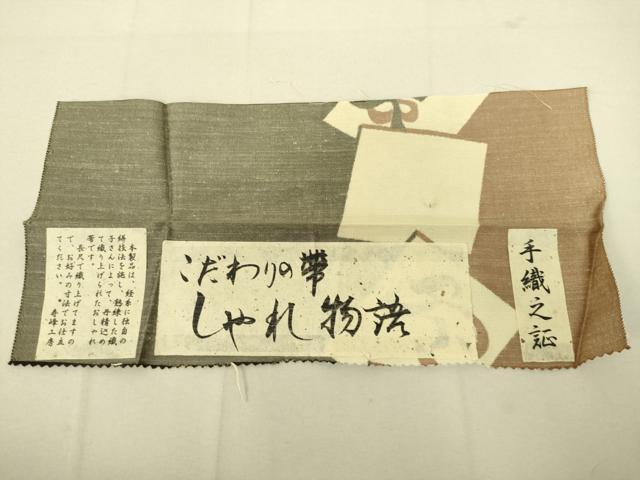 手織之証
こだわりの帯
しゃれ物語
本製品は、経糸に独自の
絣技法を施し、熟練した織
子さんによって、丹精込め
て織り上げられたおしゃれ
帯です。
長尺で織り上げてますの
で、お好みの寸法でお仕立
てください。
寿峰工房